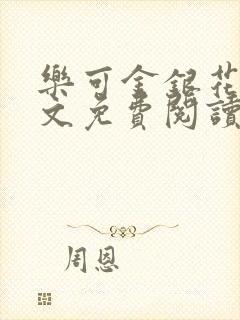 樂可金銀花
文免費閱讀
周恩